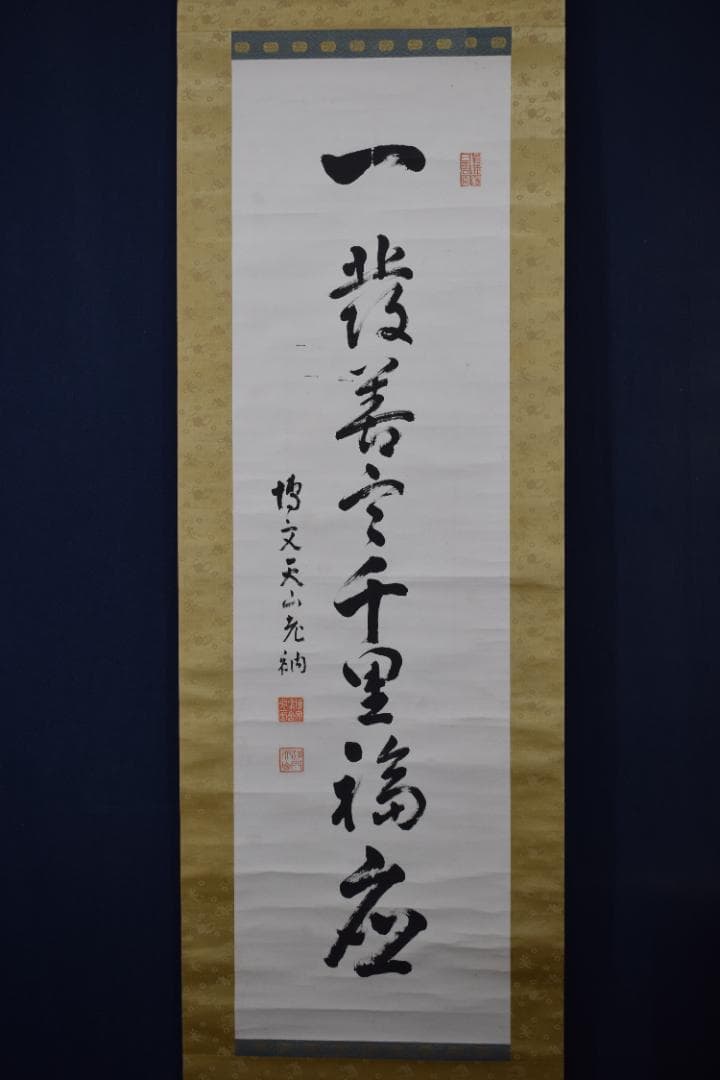 一發善言千里福應
博文天山老衲